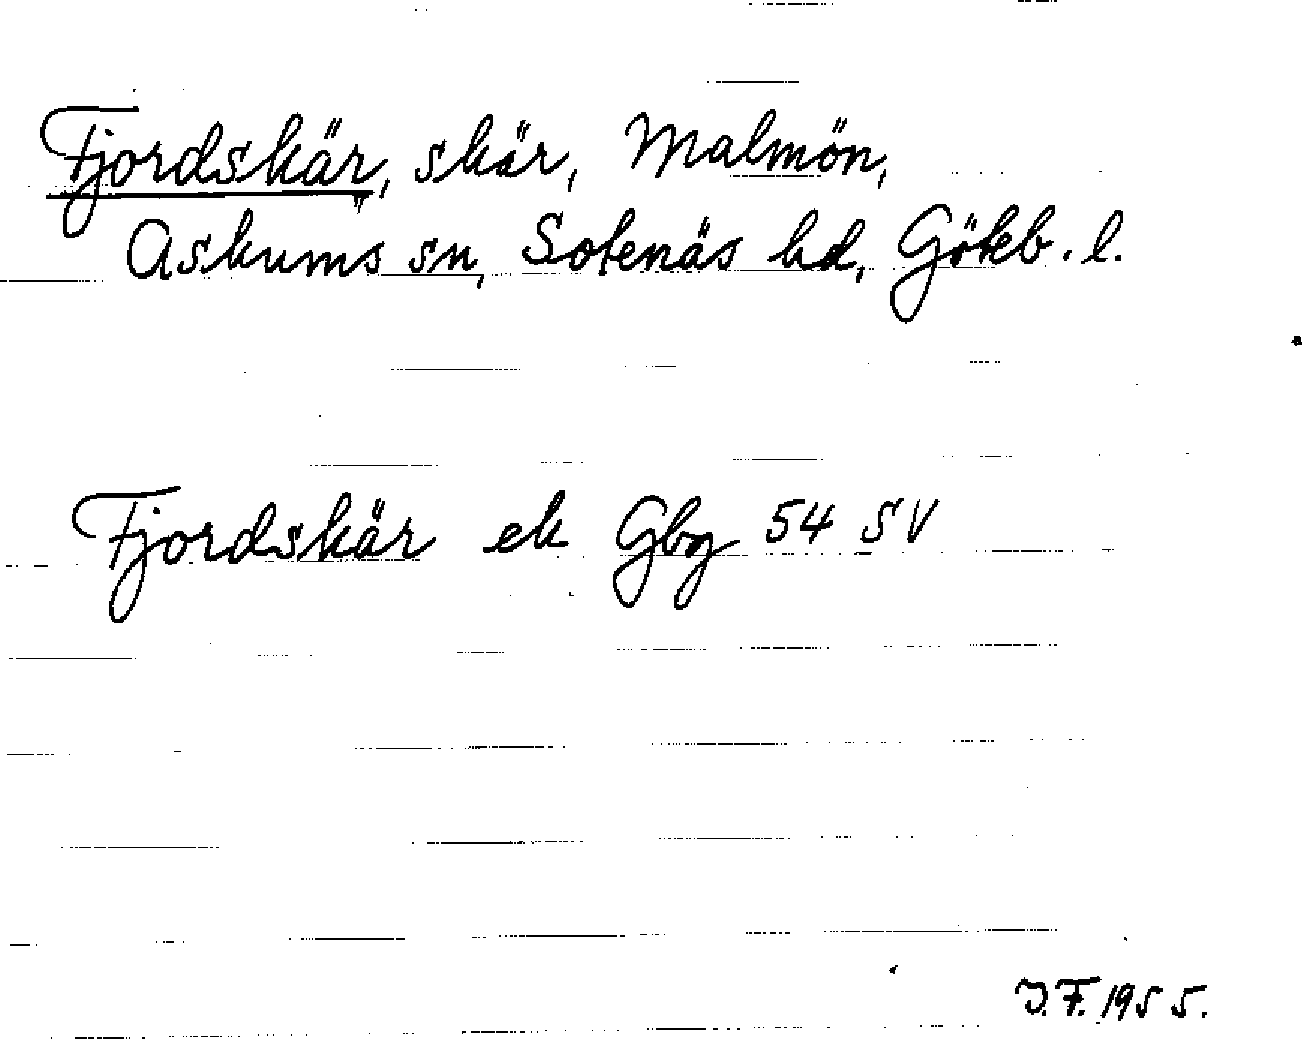 Fjordskär, skär, Malmön,
Askums sn, Sotenäs hd, Göteb. l.
Fjordskär ek Gbg 54 SV
J.F. 1955.